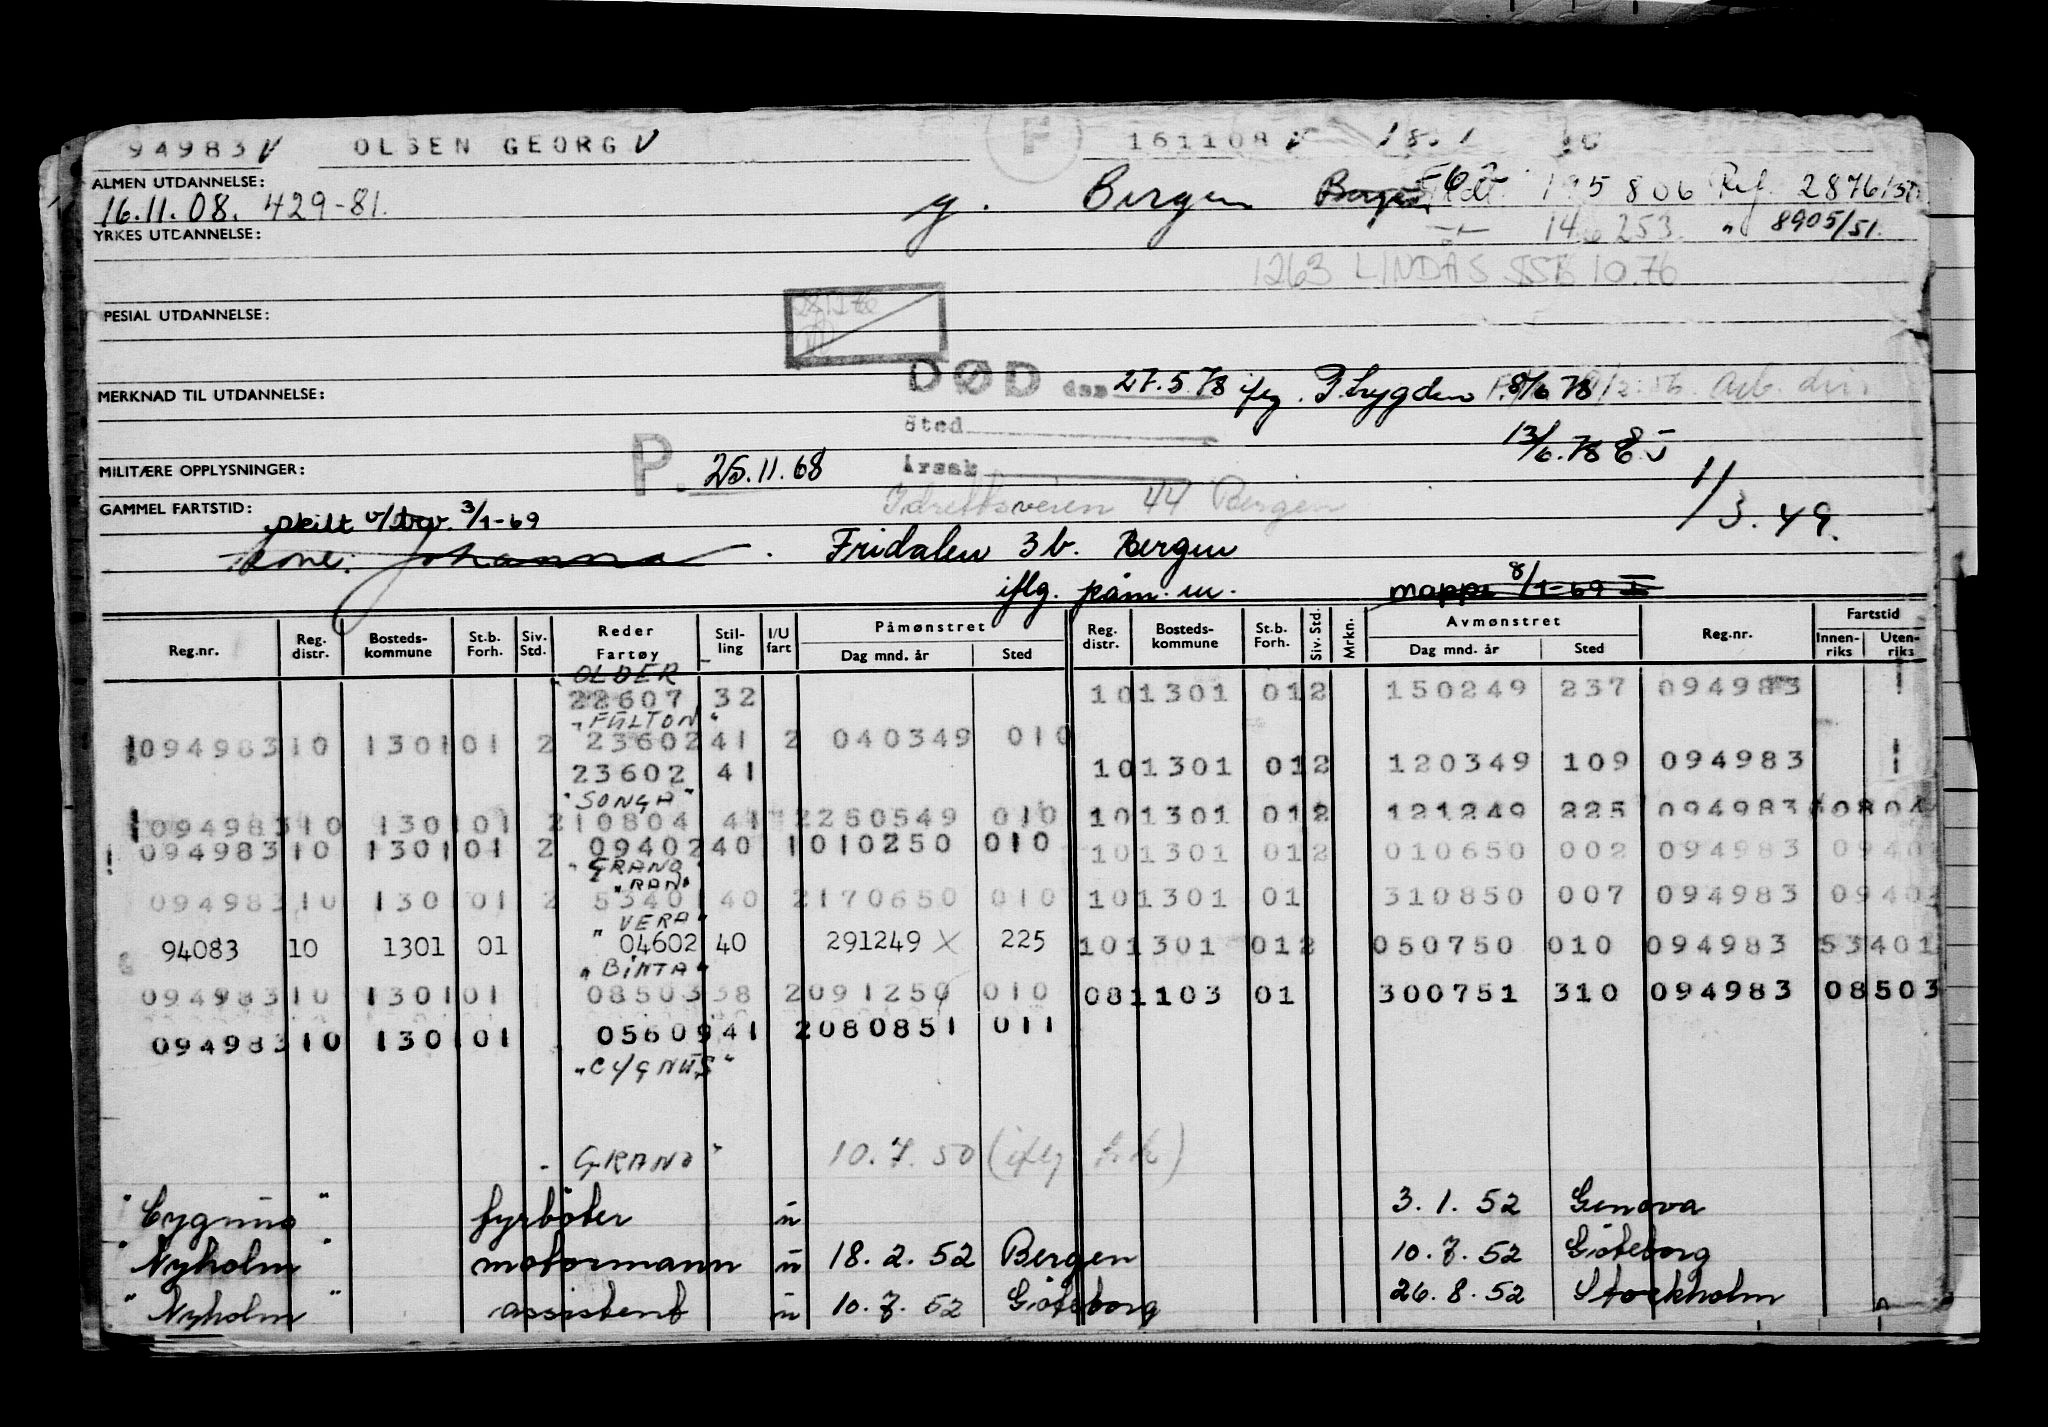 94983 V OLSEN GEORG V F 161108 V 18.1
ALMEN UTDANNELSE:
16.11.08. 429-81. g. Bergen 195806 Ref. 2876/50
YRKES UTDANNELSE: 253 " 8905/51.
1263 LINDÅS SSB 10.76
PESIAL UTDANNELSE:
DØD den 27.5.78 iflg. P.trygden 8/6 78
MERKNAD TIL UTDANNELSE:
Sted
13/6.78
MILITÆRE OPPLYSNINGER: P. 25.11.68 Årsak
Idrettsveien 44 Bergen 1/3.49.
GAMMEL FARTSTID: skilt 3/1-69
Kone: Johanna. Fridalen 3b. Bergen
iflg. påm. m. mappe 8/1-69
Reg.nr. Reg. distr. Bosteds-kommune St.b. Forh. Siv. Std. Reder Fartøy Stil-ling I/U fart Påmønstret Dag mnd. år Sted Reg. distr. Bosteds-kommune St.b. Forh. Siv. Std. Mrkn. Avmønstret Dag mnd. år Sted Reg.nr. Fartstid Innen-riks Uten-riks
OLDER
22607 32 10 1301 01 2 150249 237 094983
"FULTON"
094983 10 1301 01 2 23602 41 2 040349 010
23602 41 10 1301 01 2 120349 109 094983
"SONGA"
094983 10 1301 01 2 10804 41 2 250549 010 10 1301 01 2 121249 225 094983 10804
094983 10 1301 01 2 09402 40 1 010250 010 10 1301 01 2 010650 002 094983 0940
"GRANO"
"RAN"
094983 10 1301 01 2 53401 40 2 170650 010 10 1301 01 310850 007 094983 0940
"VERA"
94083 10 1301 01 04602 40 291249 X 225 10 1301 01 2 050750 010 094983 53401
"BINTA"
094983 10 1301 01 08503 38 2 091250 010 08 1103 01 300751 310 094983 08503
094983 10 1301 01 05609 41 2 080851 011
"CYGNUS"
"GRANO" 10.7.50 (iflg
"Cygnus" fyrbøter u 3.1.52 Genova
"Nyholm" motormann u 18.2.52 Bergen 10.7.52 Gøteborg
"Nyholm" assistent u 10.7.52 Gøteborg 26.8.52 Stockholm